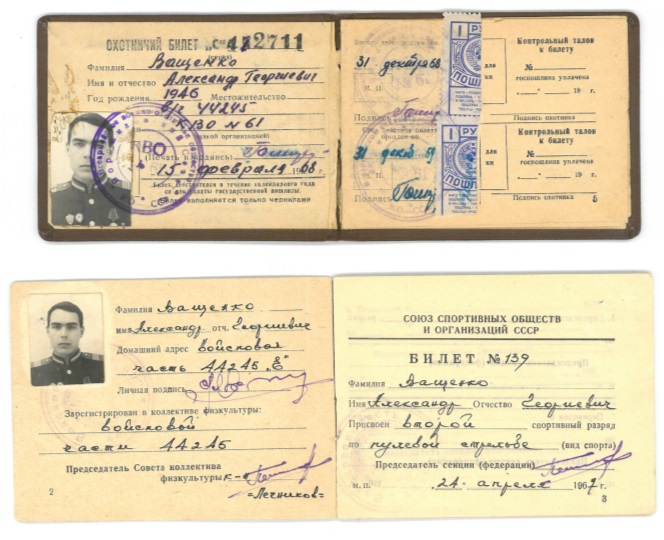 ОХОТНИЧИЙ БИЛЕТ „С“ 412711
Фамилия Ващенко
Имя и отчество Александр Георгиевич
Год рождения 1946 Местожительство
в/ч 44245
КВО № 61
(Печать и подпись)
15 февраля 1968 г.
Билет действителен в течение календарного года
со дня уплаты государственной пошлины.
заполняется только чернилами
31 декабря 68
М. П.
Подпись
1 РУ
ПОШЛ
Контрольный талон
к билету
№
госпошлина уплачена
19 г.
Подпись охотника
31 декаб 69
Подпись
1 РУ
ПОШЛ
Контрольный талон
к билету
№
госпошлина уплачена
19 г.
Подпись охотника
5
Фамилия Ващенко
имя Александр отч. Георгиевич
Домашний адрес войсковая
часть 44245 „Е“
Личная подпись
Зарегистрирован в коллективе физкультуры:
войсковой
части 44245
Председатель Совета коллектива
физкультуры к-н
=Лечников=
2
СОЮЗ СПОРТИВНЫХ ОБЩЕСТВ
И ОРГАНИЗАЦИЙ СССР
БИЛЕТ № 139
Фамилия Ващенко
Имя Александр Отчество Георгиевич
Присвоен второй спортивный разряд
по пулевой стрельбе (вид спорта)
Председатель секции (федерации)
М. П. 24 апреля 1967 г.
3